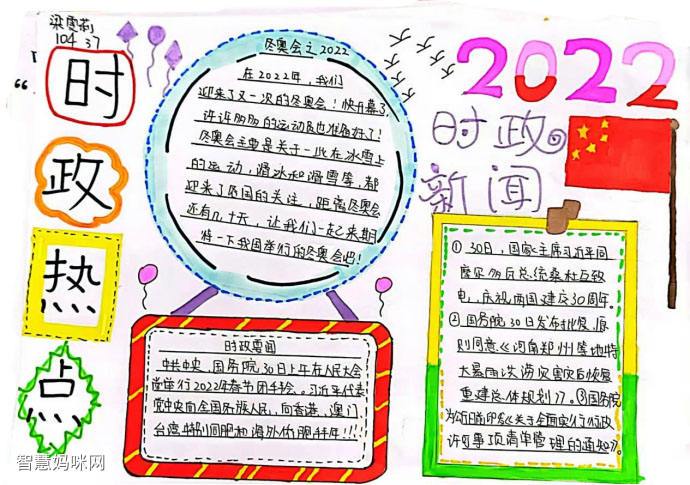 104 37
时
政
热
点
冬奥会之2022
在2022年，我们
迎来了又一次的冬奥会！快开幕了，
许许多多的运动员也准备好了！
冬奥会主要是关于一些在冰雪上
的运动，滑冰和滑雪等，都
迎来了各国的关注，距离冬奥会
还有几十天，让我们一起来期
待一下我国举行的冬奥会吧！
2022
时政
新闻
时政要闻
中共中央、国务院30日上午在人民大会
堂举行2022年春节团拜会。习近平代表
党中央向全国各族人民，向香港、澳门、
台湾 同胞和海外侨胞拜年！！！
①30日，国家主席习近平同
摩尔多瓦总统桑杜互致
电，庆祝两国建交30周年。
②国务院30日发布批复，原
则同意《河南郑州等地特
大暴雨洪涝灾害灾后恢复
重建总体规划》。③国务院
办公厅日前印发《关于全面实行行政
许可事项清单管理的通知》。
智慧妈咪网